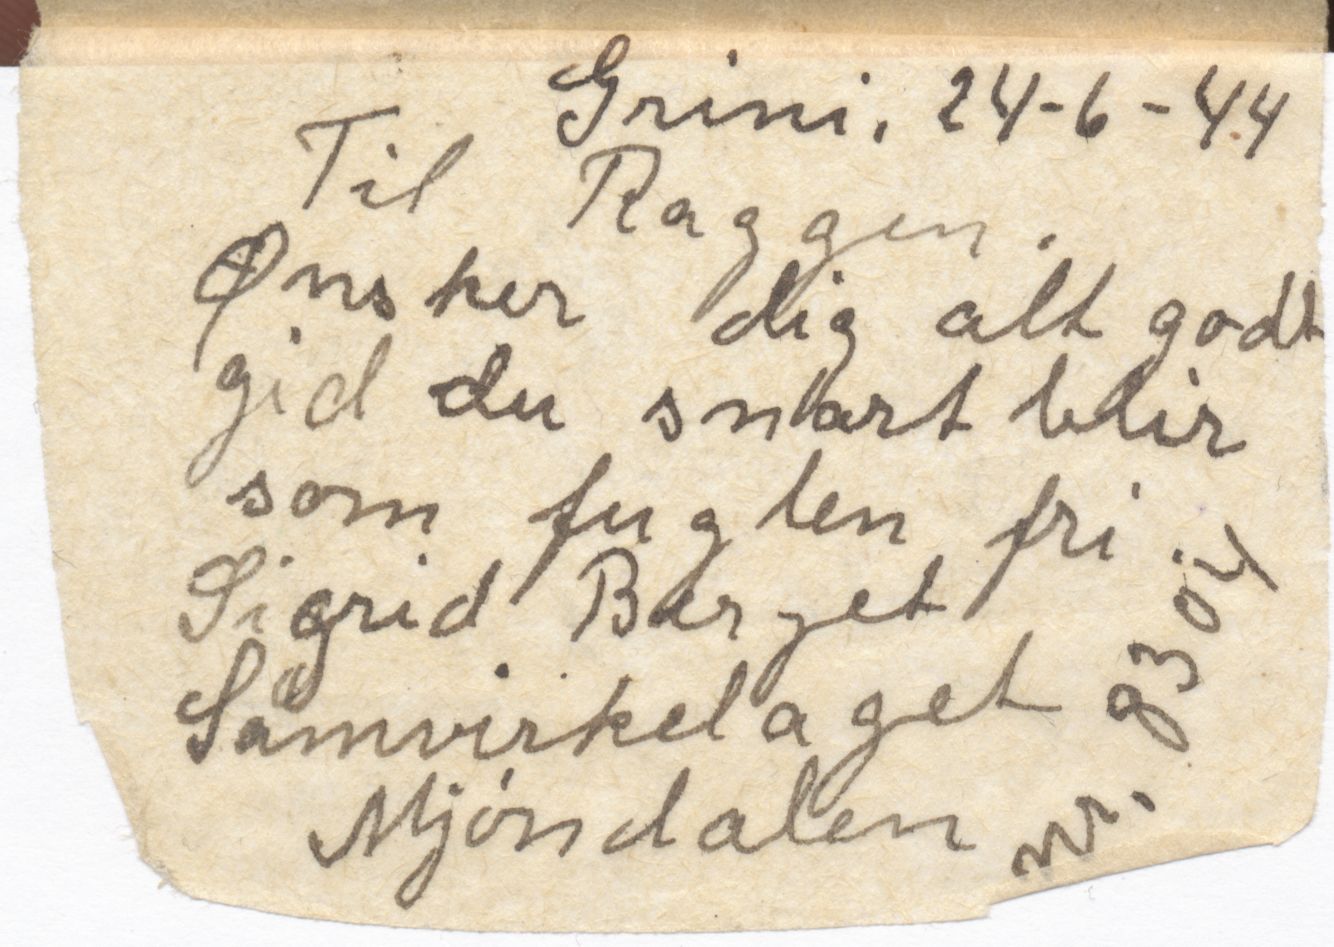 Grini, 24-6-44
Til Raggen.
Ønsker dig alt godt
gid du snart blir
som fuglen fri
Sigrid Berget
Samvirkelaget
Mjöndalen
nr. 9304